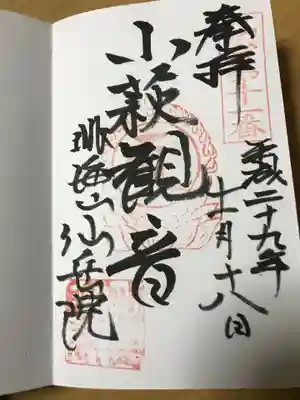 奉拝
十一番
平成二十九年
十一月十八日
小萩観音
眺海山仙岳院